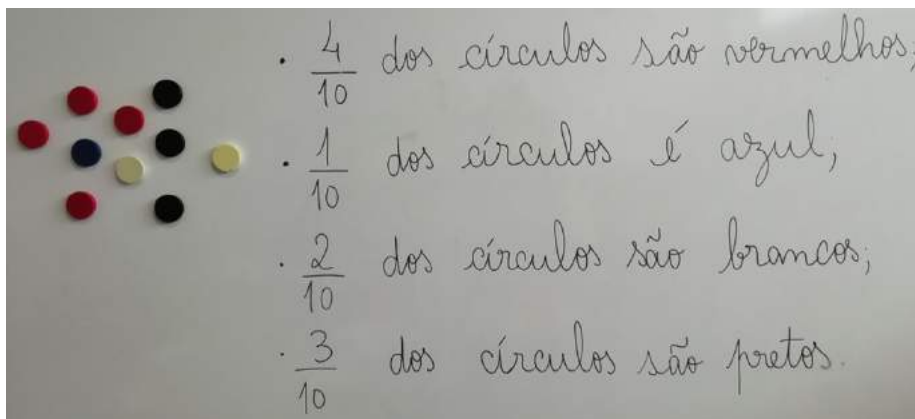 · 4/10 dos círculos são vermelhos;
· 1/10 dos círculos é azul;
· 2/10 dos círculos são brancos;
· 3/10 dos círculos são pretos.